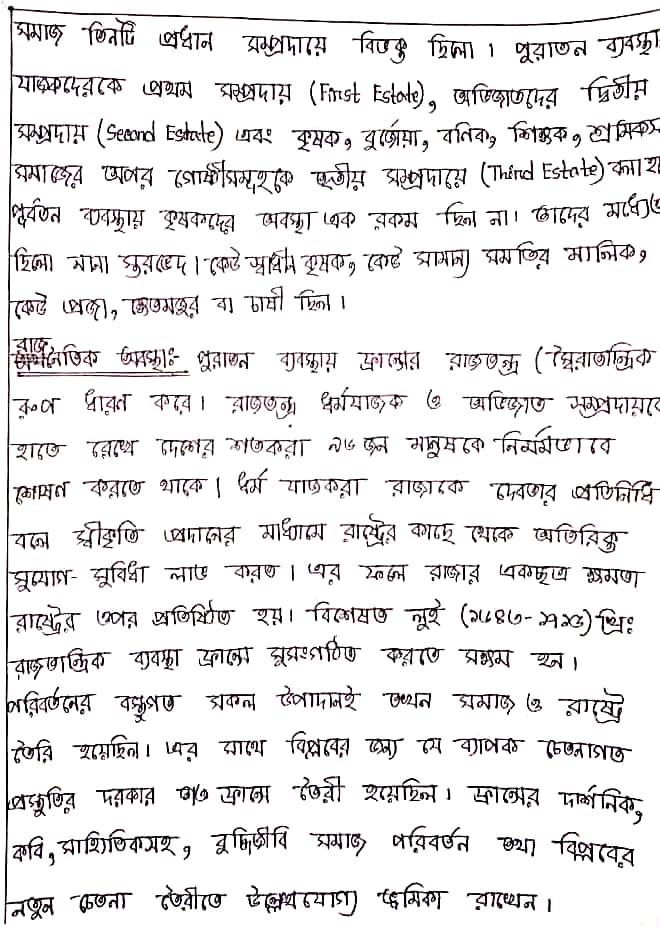 সমাজ তিনটি প্রধান সম্প্রদায়ে বিভক্ত ছিলো। পুরাতন ব্যবস্থা
যাজকদেরকে প্রথম সম্প্রদায় (First Estate), অভিজাতদের দ্বিতীয়
সম্প্রদায় (Second Estate) এবং কৃষক, বুর্জোয়া, বনিক, শিক্ষক, শ্রমিকস
সমাজের অপর গোষ্ঠীসমূহকে তৃতীয় সম্প্রদায়ে (Third Estate) বলা হ
পূর্বতন ব্যবস্থায় কৃষকদের অবস্থা এক রকম ছিল না। তাদের মধ্যেও
ছিলো নানা স্তরভেদ। কেউ স্বাধীন কৃষক, কেউ সামান্য সমতির মালিক,
কেউ প্রজা, ক্ষেতমজুর বা চাষী ছিল।
রাজনৈতিক অবস্থাঃ- পুরাতন ব্যবস্থায় ফ্রান্সের রাজতন্ত্র (স্বৈরাতান্ত্রিক
রূপ ধারণ করে। রাজতন্ত্র ধর্মযাজক ও অভিজাত সম্প্রদায়কে
হাতে রেখে দেশের শতকরা ৯৬ জন মানুষকে নির্মমভাবে
শোষণ করতে থাকে। ধর্ম যাজকরা রাজাকে দেবতার প্রতিনিধি
বলে স্বীকৃতি প্রদানের মাধ্যমে রাষ্ট্রের কাছে থেকে অতিরিক্ত
সুযোগ-সুবিধা লাভ করত। এর ফলে রাজার একচ্ছত্র ক্ষমতা
রাষ্ট্রের ওপর প্রতিষ্ঠিত হয়। বিশেষত লুই (১৬৪৩-১৭১৫) খ্রিঃ
রাজতান্ত্রিক ব্যবস্থা ফ্রান্সে সুসংগঠিত করতে সক্ষম হন।
পরিবর্তনের বস্তুগত সকল উপাদানই তখন সমাজ ও রাষ্ট্রে
তৈরি হয়েছিল। এর সাথে বিপ্লবের জন্য যে ব্যাপক চেতনাগত
প্রস্তুতির দরকার তাও ফ্রান্সে তৈরী হয়েছিল। ফ্রান্সের দার্শনিক,
কবি, সাহিত্যিকসহ, বুদ্ধিজীবি সমাজ পরিবর্তন তথা বিপ্লবের
নতুন চেতনা তৈরীতে উল্লেখযোগ্য ভূমিকা রাখেন।